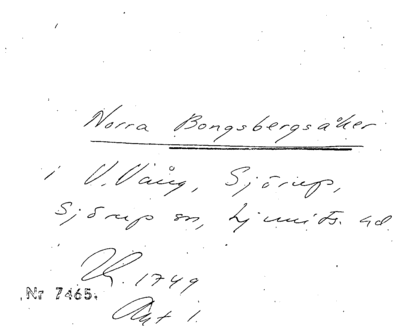 Norra Bongsbergsåker
i V. Vång, Sjörup,
Sjörup sn, Ljunits. hd.
1749
Nr 7465.
Akt 1.